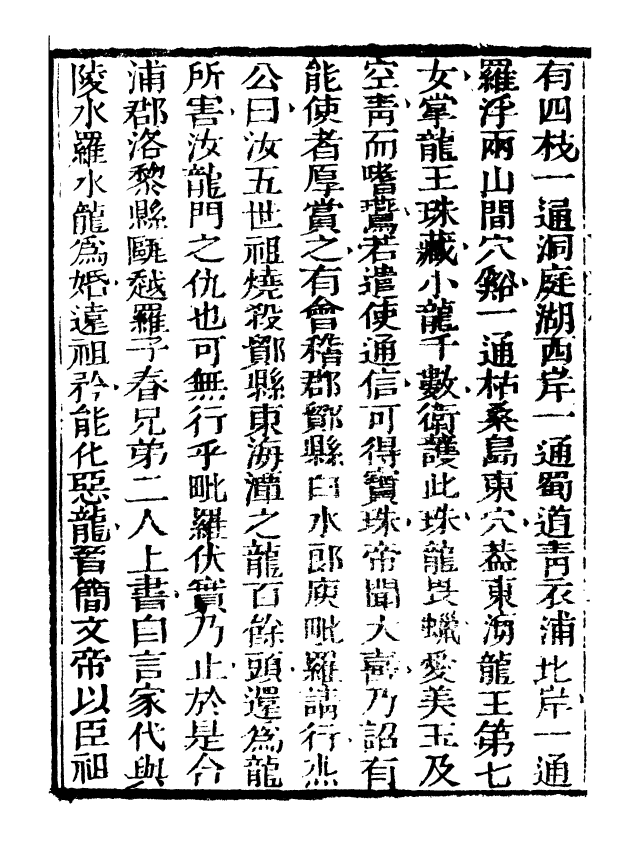 有四枝一通洞庭湖西岸一通蜀道青衣浦北岸一通
羅浮兩山間穴谿一通枯桑島東穴葢東海龍王第七
女掌龍王珠藏小龍千數衛護此珠龍畏蠟愛美玉及
空青而嗜鷰若遣使通信可得寶珠帝聞大喜乃詔有
能使者厚賞之有會稽郡鄮縣白水郎庾毗羅請行杰
公曰汝五世祖燒殺鄮縣東海潭之龍百餘頭還為龍
所害汝龍門之仇也可無行乎毗羅伏實乃止於是合
浦郡洛黎縣甌越羅子春兄弟二人上書白言家代與
陵水羅水龍為婚遠祖矜能化惡龍晉簡文帝以臣祖